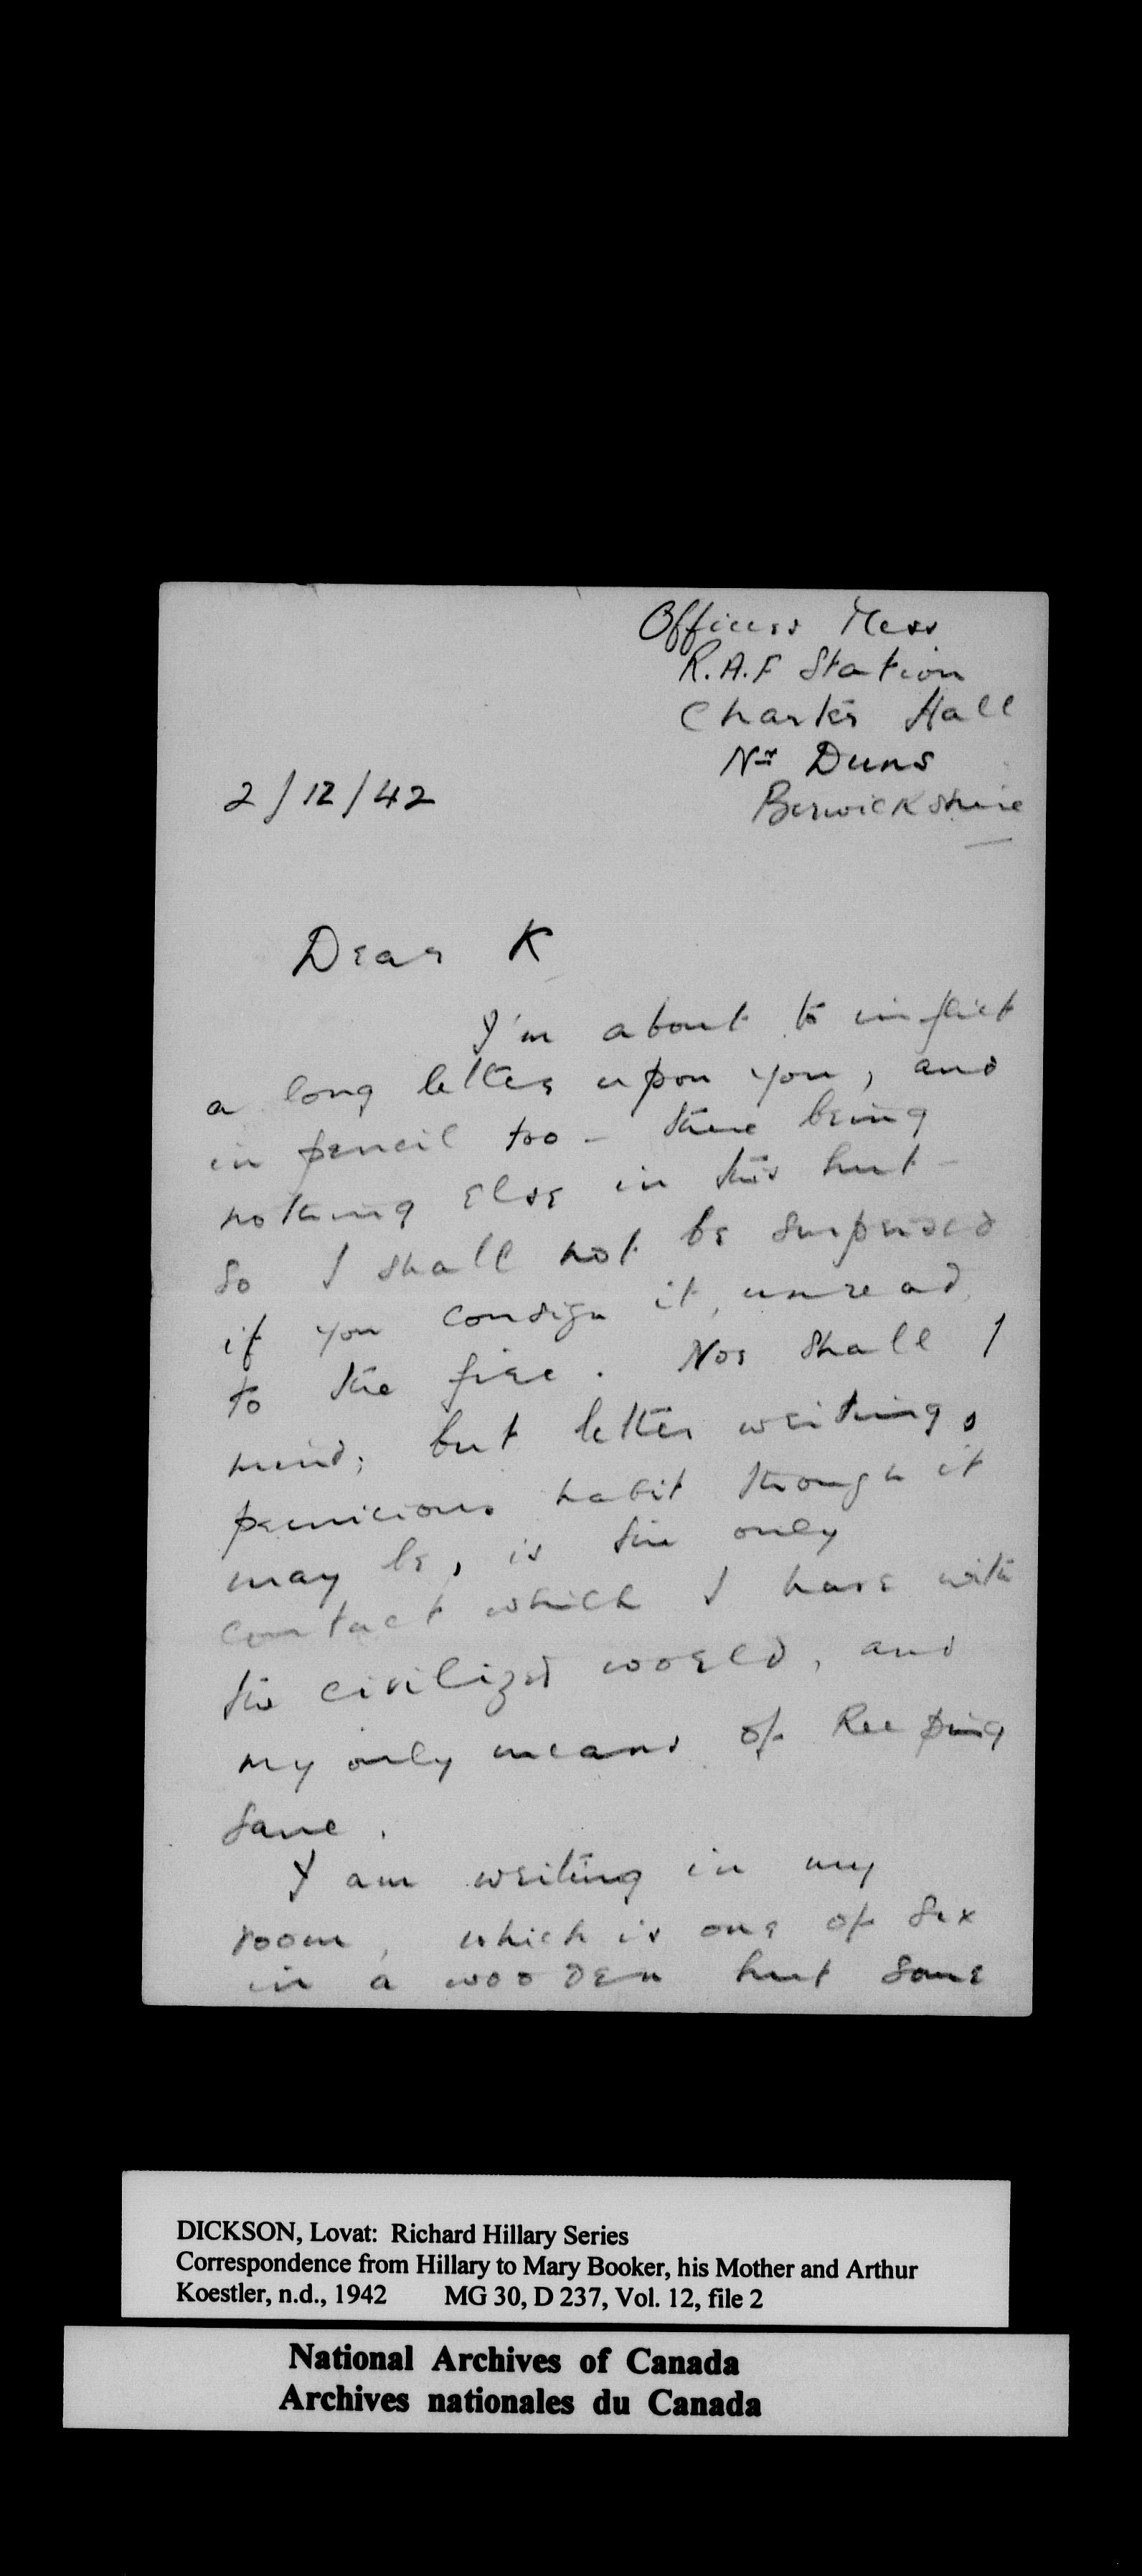 Officers Mess
R.A.F Station
Charter Hall
Nr Duns
Berwickshire
2/12/42
Dear K
I'm about to inflict
a long letter upon you, and
in pencil too - there being
nothing else in this hut -
so I shall not be surprised
if you consign it, unread,
to the fire. Nor shall I
mind; but letter writing,
pernicious habit though it
may be, is the only
contact which I have with
the civilized world, and
my only means of keeping
sane.
I am writing in my
room, which is one of six
in a wooden hut some
DICKSON, Lovat: Richard Hillary Series
Correspondence from Hillary to Mary Booker, his Mother and Arthur
Koestler, n.d., 1942 MG 30, D 237, Vol. 12, file 2
National Archives of Canada
Archives nationales du Canada